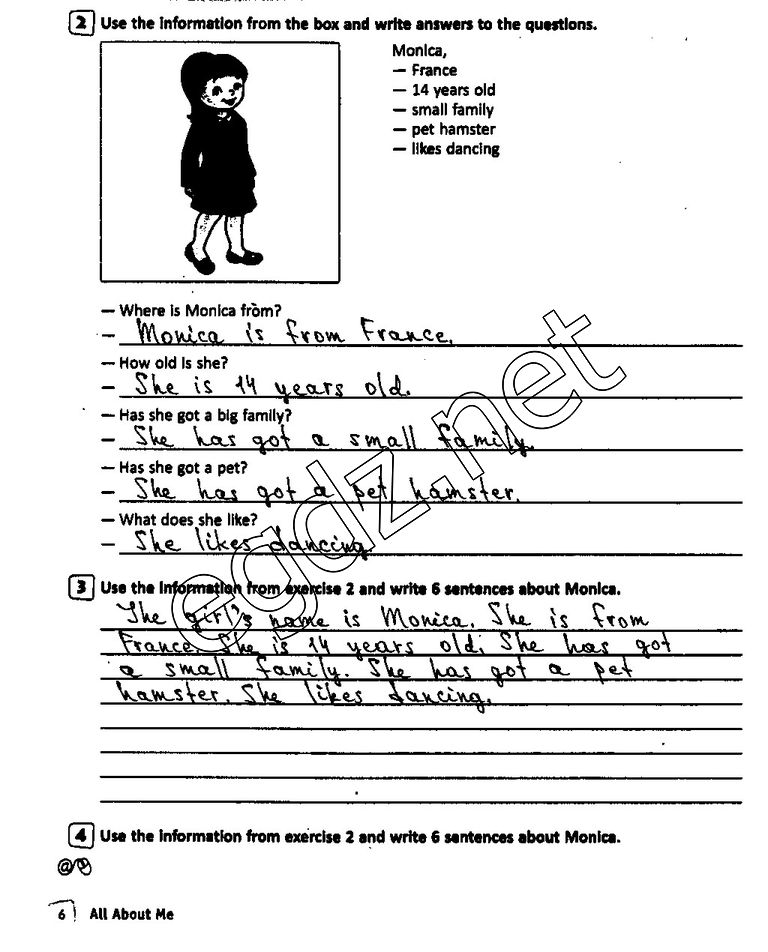 2 Use the information from the box and write answers to the questions.
Monica,
— France
— 14 years old
— small family
— pet hamster
— likes dancing
— Where is Monica from?
— Monica is from France.
— How old is she?
— She is 14 years old.
— Has she got a big family?
— She has got a small family.
— Has she got a pet?
— She has got a pet hamster.
— What does she like?
— She likes dancing.
egdz.net
3 Use the information from exercise 2 and write 6 sentences about Monica.
The girl's name is Monica. She is from
France. She is 14 years old. She has got
a small family. She has got a pet
hamster. She likes dancing.
4 Use the information from exercise 2 and write 6 sentences about Monica.
6 All About Me